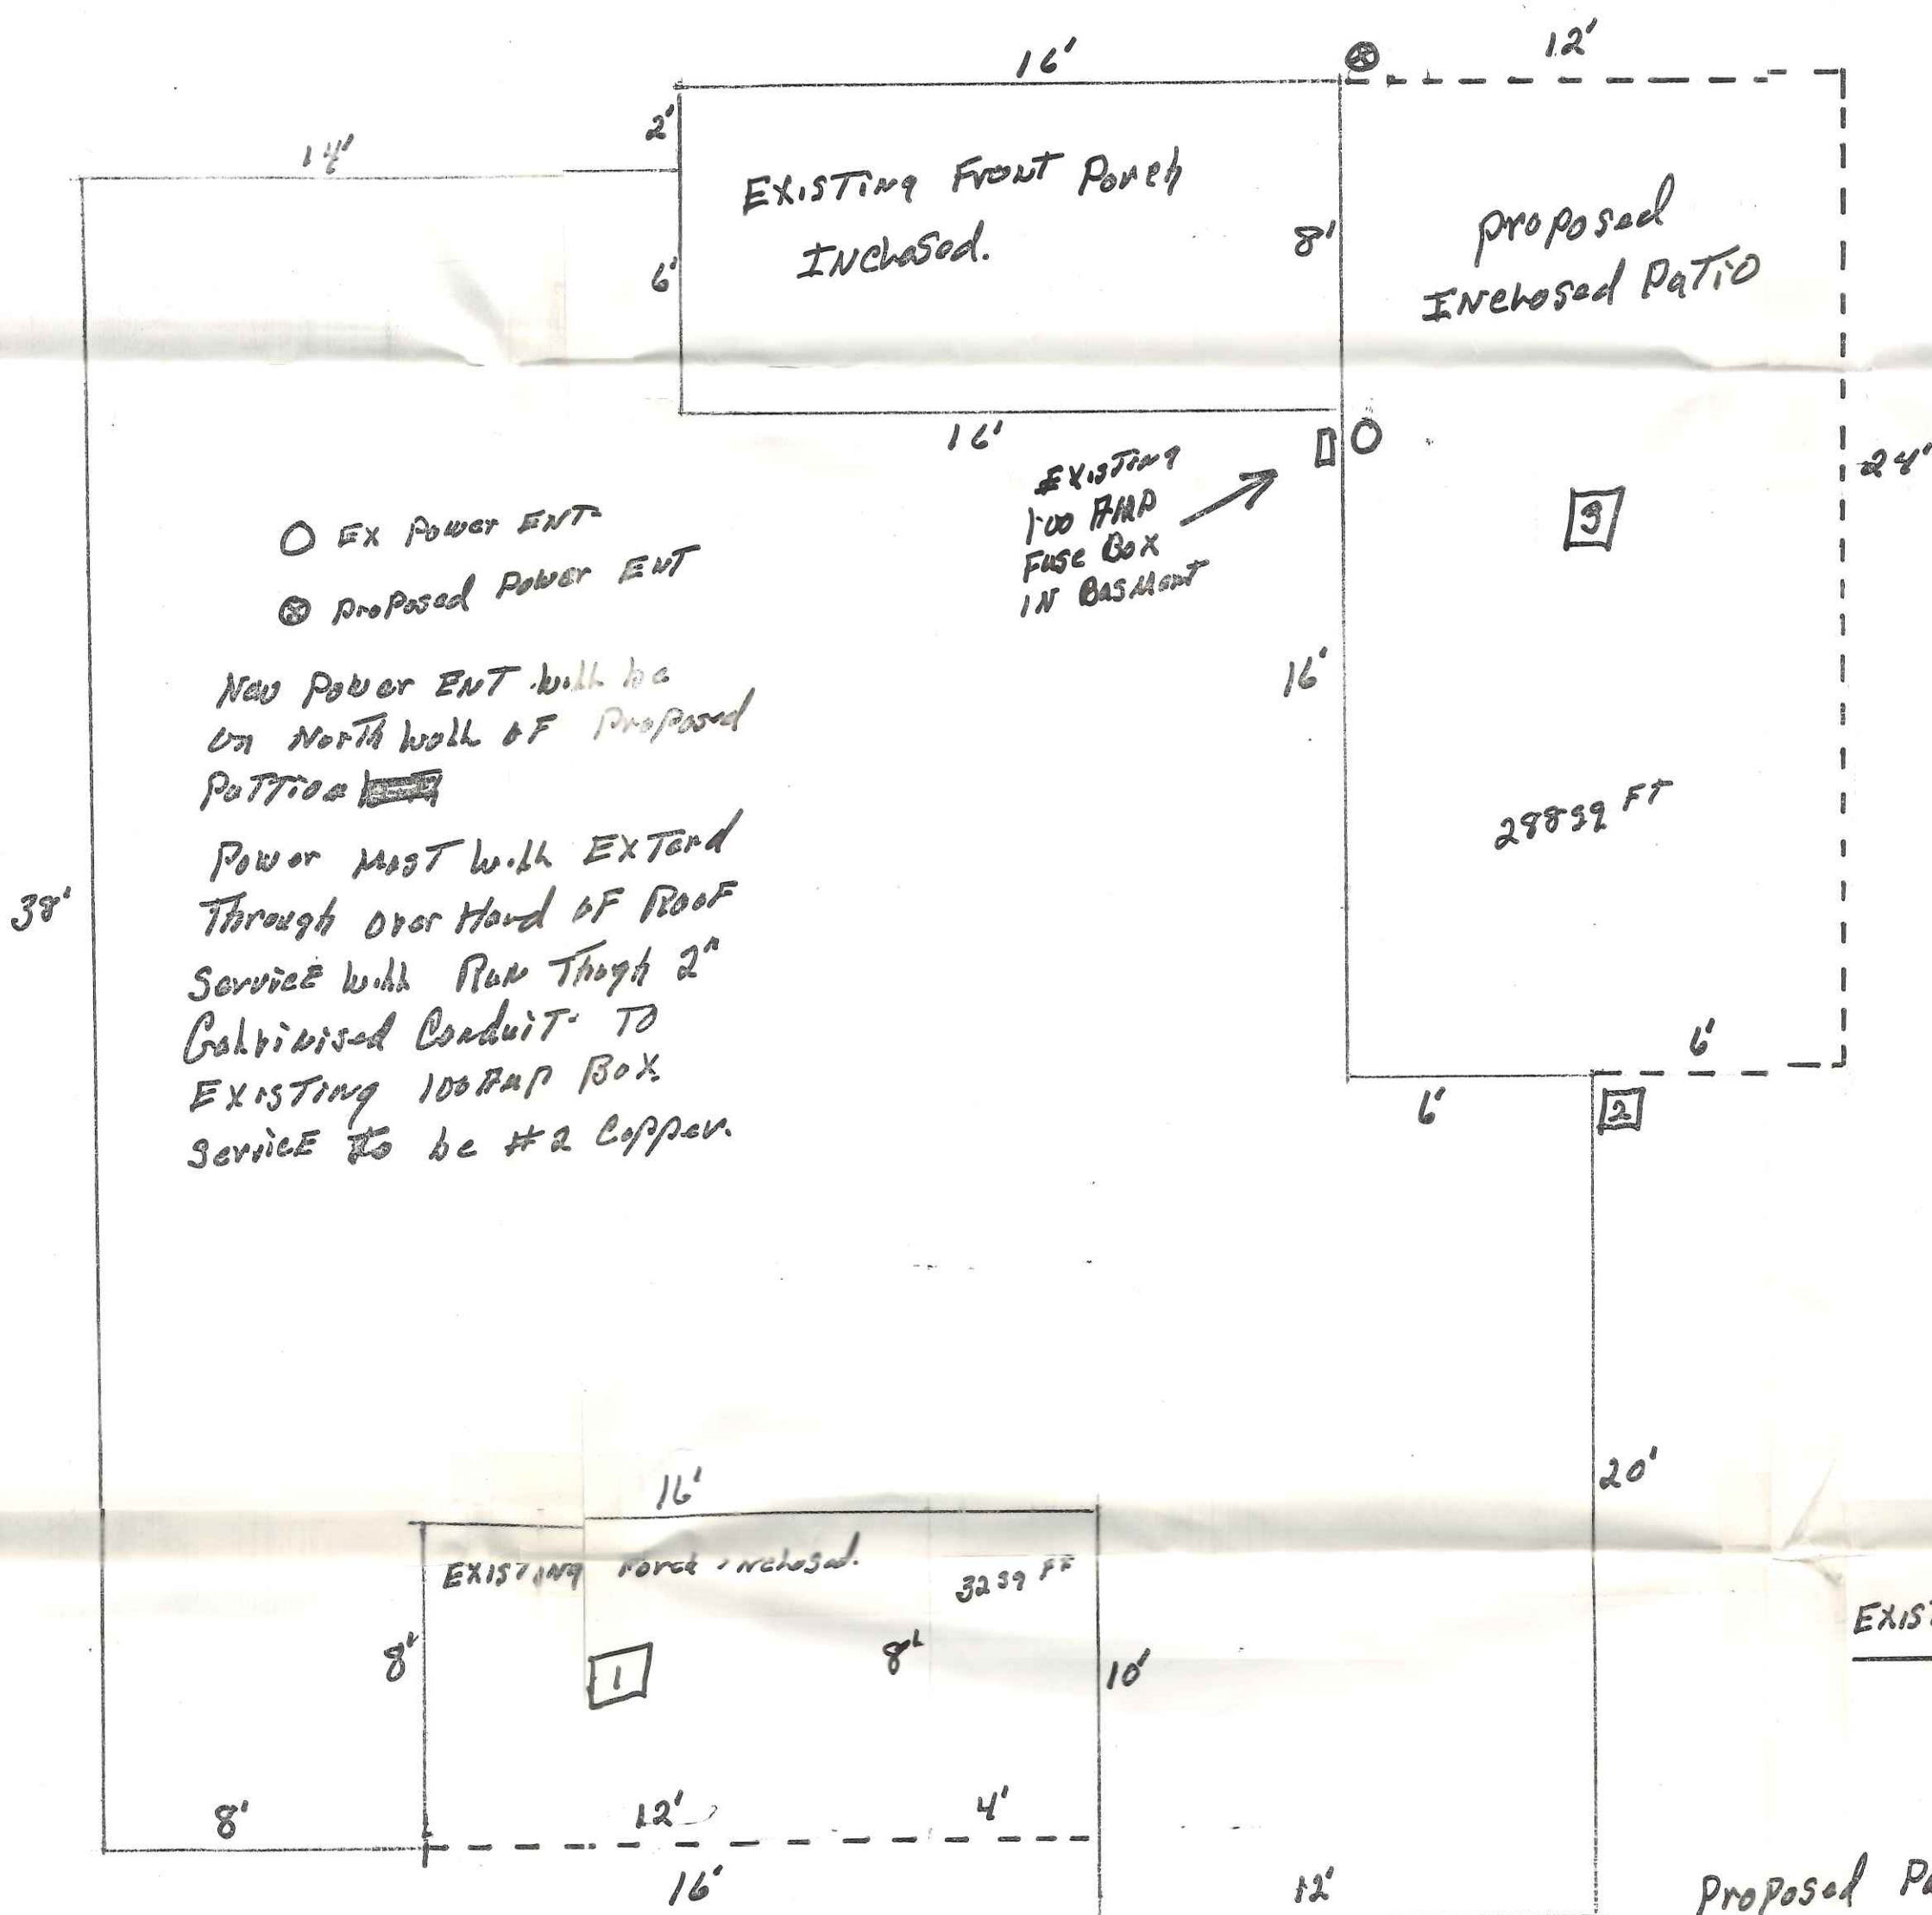 16'
12'
14'
2'
EXISTING FRONT Porch
INClosed.
6'
8'
proposed
INClosed PATIO
16'
24'
EXISTING
100 AMP
FUSE BOX
IN BasMent
3
O EX Power ENT
⊗ proposed Power ENT
16'
New Power ENT will be
on North wall of Proposed
Pattio
288 sq FT
Power Mast will EXTend
38'
Through over Hand of Roof
Service will Run Though 2"
Galvinised Conduit TO
EXISTING 100 Amp BOX
Service To be #2 Copper.
6'
6'
2
20'
16'
EXISTING Porch inclosed.
32 sq FT
EXIST
8'
8'
10'
1
8'
12'
4'
16'
12'
Proposed Pa